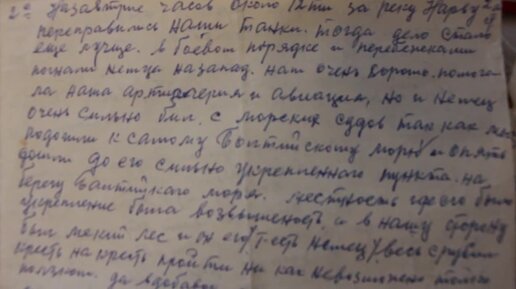 2° Назавтрие часов около 12ти за реку Нарву
переправились наши танки. тогда дело стало
еще лучше. в боевом порядке и перебежками
погнали немца на запад. нам очень хорошо помога
ла наша артилерия и авиация, но и немец
очень сильно бил, с морских судов так как мы
подошли к самому Балтийскому морю и опять
дошли до его сильно укрепленного пункта. на
берегу Балтийского моря. местность где его было
укрепление была возвышеность и в нашу сторону
был мелкий лес и он его (т-есть немец) весь срубил
кресть на кресть пройти ни как невозможно только
ползком. да вдобавок